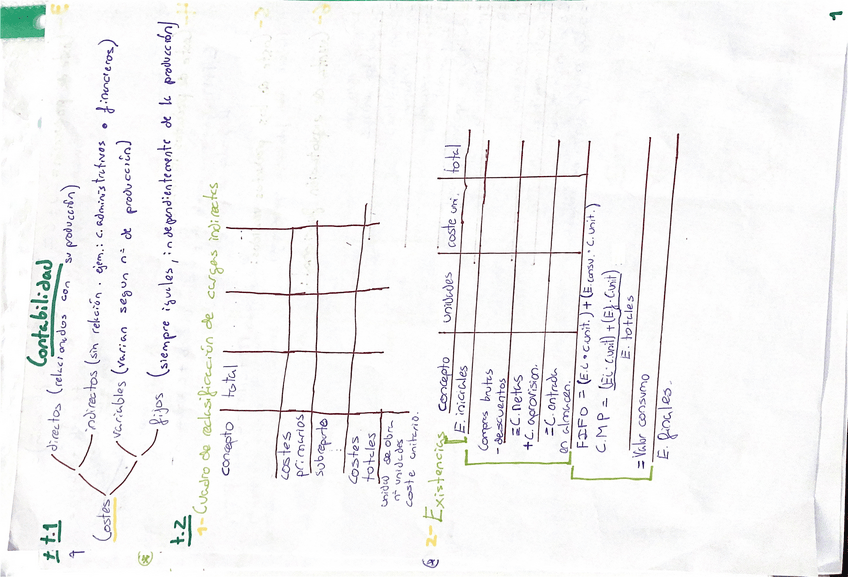 Contabilidad
t.1
Costes
directos (relacionados con su producción)
indirectos (sin relación. ejem.: c.administrativos o financieros)
variables (varian segun nº de producción)
fijos (siempre iguales, independientemente de la producción)
t.2
1- Cuadro de reclasificación de cargas indirectas
concepto total
costes
primarios
subreparto
costes
totales
unidad de obra
nº unidades
coste unitario.
2- Existencias
concepto unidades coste uni. total
E. iniciales
Compras brutas
- descuentos
= C. netas
+ C. aprovision.
= C. entrada
en almacen.
FIFO = (E.i. · c.unit.) + (E.consu. · c.unit.)
C.M.P = (Ei. · c.unit) + (Ef. · c.unit)
E. totales
= Valor consumo
E. finales.
1